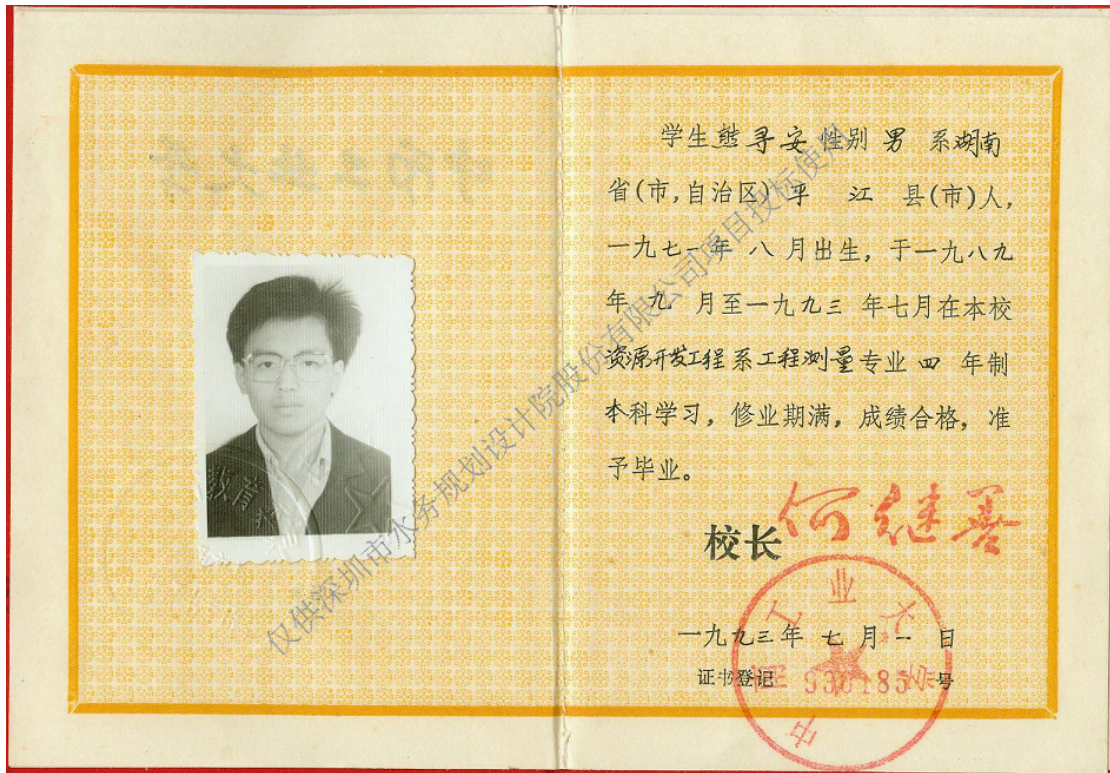 学生熊寻安性别男 系湖南
省(市,自治区)平 江 县(市)人,
一九七一年 八 月出生,于一九八九
年 九 月至一九九三 年七月在本校
资源开发工程系工程测量专业四 年制
本科学习,修业期满,成绩合格,准
予毕业。
校长何继善
中南工业大学
一九九三年 七 月 一 日
证书登记 930185 号
仅供深圳市水务规划设计院股份有限公司项目投标使用